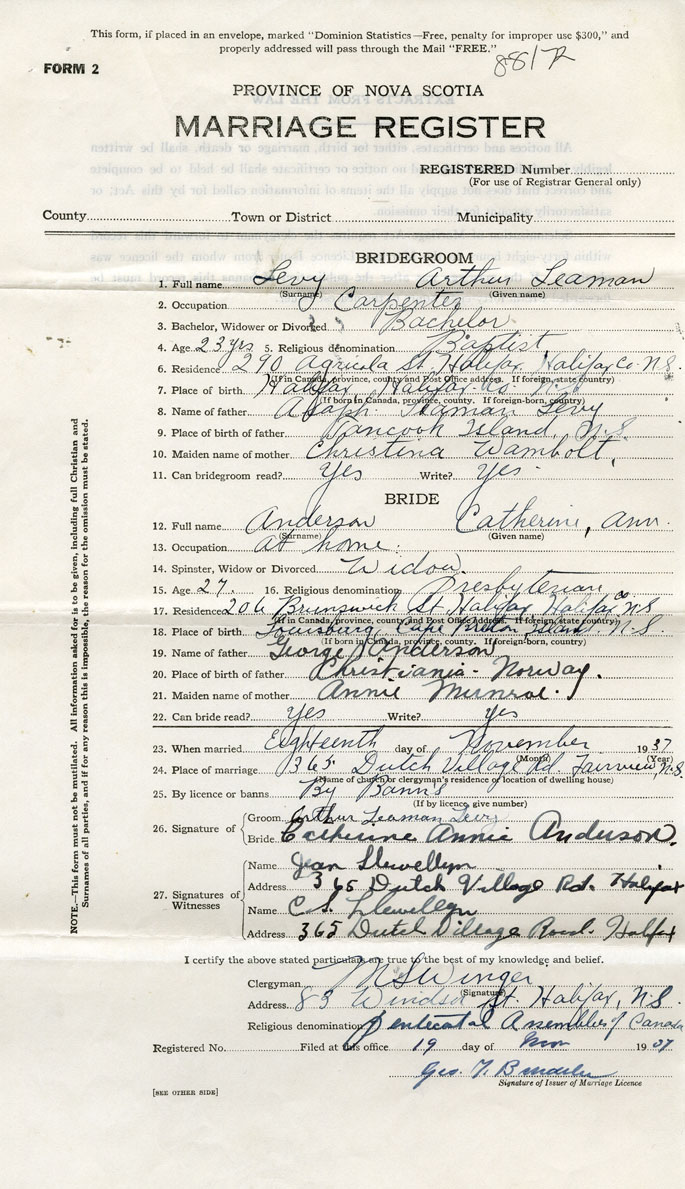 This form, if placed in an envelope, marked "Dominion Statistics—Free, penalty for improper use $300," and
properly addressed will pass through the Mail "FREE."
FORM 2
PROVINCE OF NOVA SCOTIA
MARRIAGE REGISTER
REGISTERED Number
(For use of Registrar General only)
County Town or District Municipality
BRIDEGROOM
1. Full name Levy Arthur Leaman
(Surname) (Given name)
2. Occupation Carpenter
3. Bachelor, Widower or Divorced Bachelor
4. Age 23 yrs 5. Religious denomination Baptist
6. Residence 290 Agricola St. Halifax, Halifax Co. N.S.
(If in Canada, province, county and Post Office address. If foreign, state country)
7. Place of birth Halifax, Halifax Co. N.S.
(If born in Canada, province, county. If foreign-born, country)
8. Name of father Leaman Levy
9. Place of birth of father Tancook Island, N.S.
10. Maiden name of mother Christina Wambolt,
11. Can bridegroom read? Yes Write? Yes
BRIDE
12. Full name Anderson Catherine, Ann
(Surname) (Given name)
13. Occupation at home.
14. Spinster, Widow or Divorced Widow
15. Age 27 16. Religious denomination Presbyterian
17. Residence 206 Brunswick St. Halifax, Halifax Co N.S
(If in Canada, province, county and Post Office Address. If foreign, state country)
18. Place of birth Louisburg, Cape Breton Island, N.S.
(If born in Canada, province, county. If foreign-born, country)
19. Name of father George Anderson
20. Place of birth of father Christiania - Norway.
21. Maiden name of mother Annie Munroe.
22. Can bride read? Yes Write? yes
23. When married Eighteenth day of November 1937
(Month) (Year)
24. Place of marriage 365 Dutch Village Rd. Fairview, N.S.
(Name of church or clergyman's residence of location of dwelling house)
25. By licence or banns By Banns
(If by licence, give number)
26. Signature of Groom Arthur Leaman Levy
Bride Catherine Annie Anderson.
27. Signatures of Witnesses
Name Jean Llewellyn
Address 365 Dutch Village Rd. Halifax
Name C.S. Llewellyn
Address 365 Dutch Village Road. Halifax
I certify the above stated particulars are true to the best of my knowledge and belief.
Clergyman M S Winger
(Signature)
Address 83 Windsor St. Halifax, N.S.
Religious denomination Pentecostal Assemblies of Canada
Registered No. Filed at this office 19 day of Nov 1937
Geo. T.
Signature of Issuer of Marriage Licence
[SEE OTHER SIDE]
NOTE.—This form must not be mutilated. All information asked for is to be given, including full Christian and
Surnames of all parties, and if for any reason this is impossible, the reason for the omission must be stated.